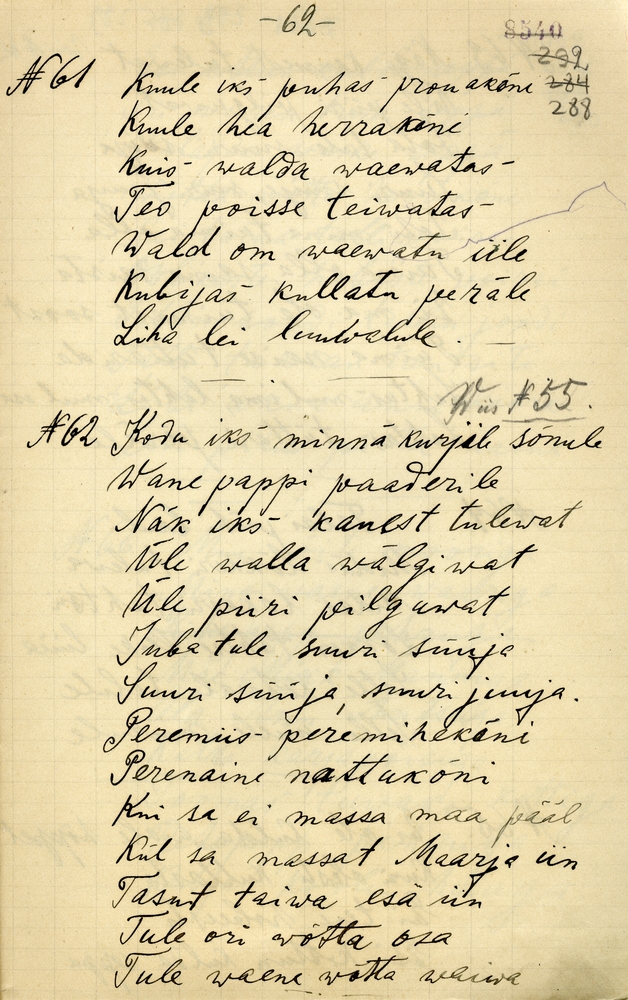 -62-
8540
292
284
288
№ 61 Kuule iks puhas prouakõne
Kuule hea herrakõni
Kuis walda waewatas
Teo poisse teiwatas
Wald om waewatu üle
Kubijas kullatu peräle
Liha lei luuwalule.
Wiis № 55.
№ 62 Kodu iks minnä kurjile sõnule
Wane pappi paaderile
Näk iks kauest tulewat
Üle walla wälgiwat
Üle piiri pilguwat
Juba tule suuri süüja
Suuri süüja, suuri juuja.
Peremiis peremihekõni
Perenaine nattukõni
Kui sa ei massa maa pääl
Kül sa massat Maarja iin
Tasut taiwa esä iin
Tule ori wõtta osa
Tule waene wõtta waiwa